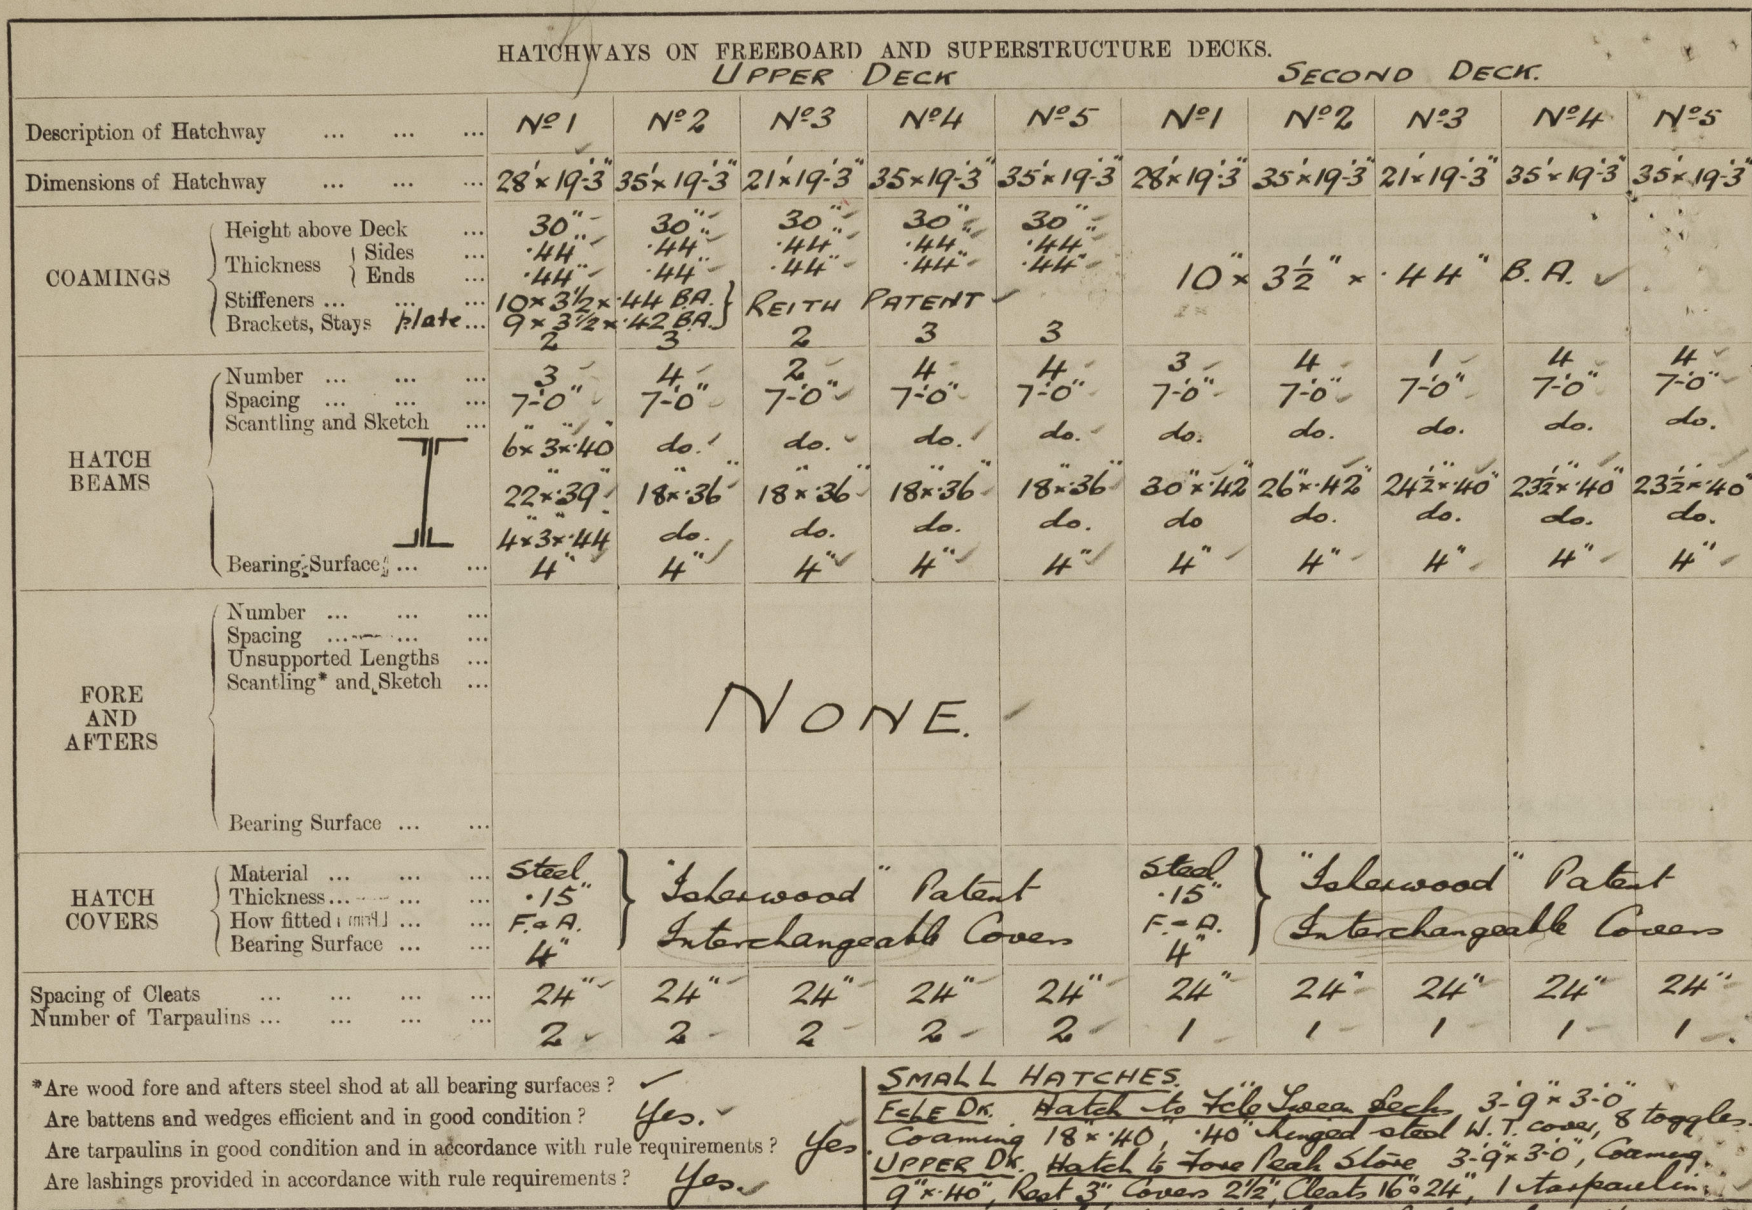 HATCHWAYS ON FREEBOARD AND SUPERSTRUCTURE DECKS.
UPPER DECK SECOND DECK.
Description of Hatchway ... ... ... Nº1 Nº2 Nº3 Nº4 Nº5 Nº1 Nº2 Nº3 Nº4 Nº5
Dimensions of Hatchway ... ... ... 28'×19'-3" 35'×19'-3" 21'×19'-3" 35'×19'-3" 35'×19'-3" 28'×19'-3" 35'×19'-3" 21'×19'-3" 35'×19'-3" 35'×19'-3"
COAMINGS
Height above Deck ... 30" 30" 30" 30" 30"
Thickness { Sides ... .44" .44" .44" .44" .44"
Ends ... .44" .44" .44" .44" .44" 10" × 3½" × .44" B.A.
Stiffeners ... ... ... 10 × 3½ × .44 B.A. } REITH PATENT
Brackets, Stays plate ... 9 × 3½ × .42 B.A.
2 3 2 3 3
HATCH BEAMS
Number ... ... ... 3 4 2 4 4 3 4 1 4 4
Spacing ... ... ... 7'-0" 7'-0" 7'-0" 7'-0" 7'-0" 7'-0" 7'-0" 7'-0" 7'-0" 7'-0"
Scantling and Sketch ...
6" × 3" × .40" do. do. do. do. do. do. do. do. do.
22" × .39" 18" × .36" 18" × .36" 18" × .36" 18" × .36" 30" × .42" 26" × .42" 24½" × .40" 23½" × .40" 23½" × .40"
4" × 3" × .44" do. do. do. do. do do. do. do. do.
Bearing Surface ... ... 4" 4" 4" 4" 4" 4" 4" 4" 4" 4"
FORE AND AFTERS
Number ... ... ...
Spacing ... ... ...
Unsupported Lengths ...
Scantling* and Sketch ...
NONE.
Bearing Surface ... ...
HATCH COVERS
Material ... ... ... Steel } "Isherwood" Patent Steel } "Isherwood" Patent
Thickness ... ... ... .15" .15"
How fitted ... ... F. & A. Interchangeable Covers F. & A. Interchangeable Covers
Bearing Surface ... ... 4" 4"
Spacing of Cleats ... ... ... ... 24" 24" 24" 24" 24" 24" 24" 24" 24" 24"
Number of Tarpaulins ... ... ... ... 2 2 2 2 2 1 1 1 1 1
*Are wood fore and afters steel shod at all bearing surfaces?
Are battens and wedges efficient and in good condition? Yes.
Are tarpaulins in good condition and in accordance with rule requirements? Yes.
Are lashings provided in accordance with rule requirements? Yes.
SMALL HATCHES.
FCLE DK. Hatch to Fcle Tween Decks 3'-9" × 3'-0"
Coaming 18" × .40", .40" hinged steel W.T. cover, 8 toggles.
UPPER DK. Hatch to Fore Peak Store 3'-9" × 3'-0", Coaming.
9" × .40", Rest 3" Covers 2½", Cleats 16" & 24", 1 tarpaulin.